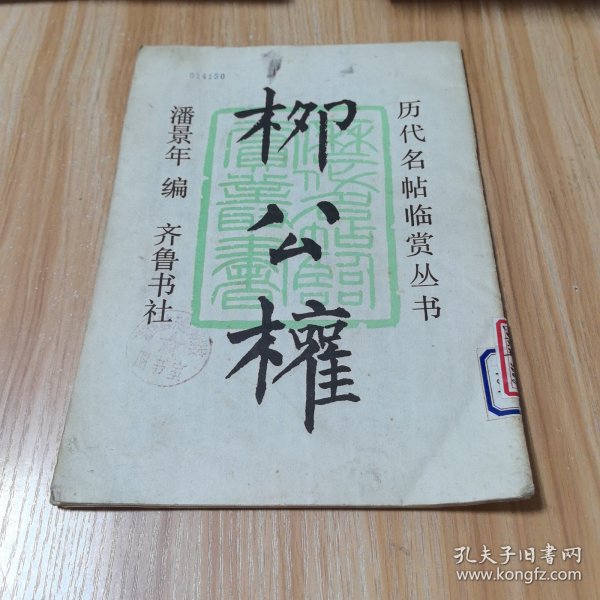 014150
历代名帖临赏丛书
柳公權
潘景年 编 齐鲁书社
孔夫子旧书网
www.kongfz.com